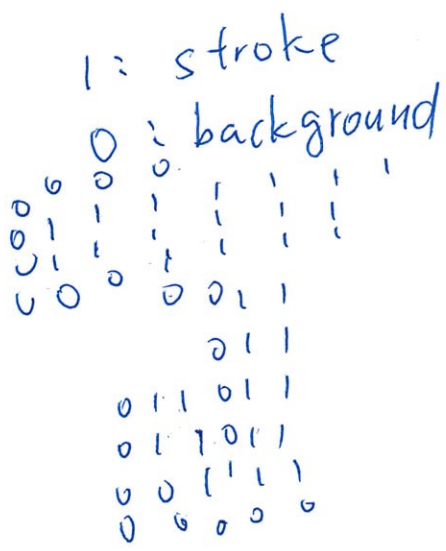 1: stroke
0: background
0 0 0 0 1 1 1 1
0 1 1 1 1 1 1
0 1 1 1 1 1 1
0 0 0 0 0 1 1
0 1 1
0 1 1 0 1 1
0 1 1 0 1 1
0 0 1 1 1 1
0 0 0 0 0